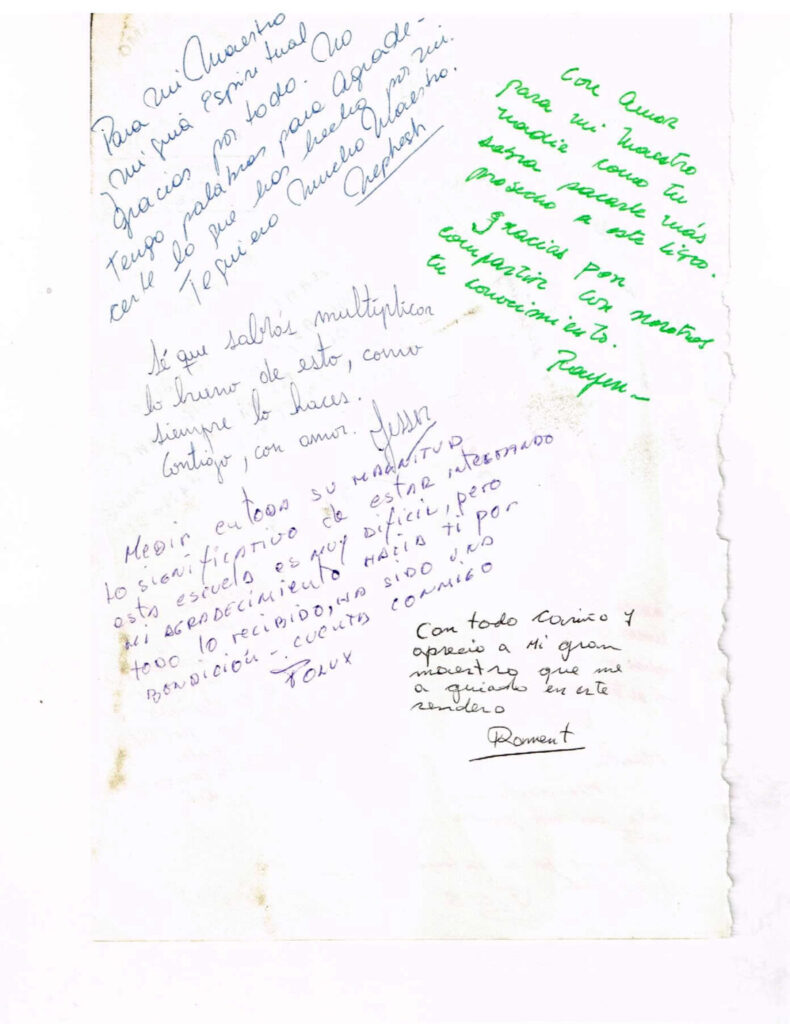 Para mi Maestro
mi guía espiritual
gracias por todo. No
Tengo palabras para agrade-
certe lo que has hecho por mi.
Te quiero mucho Maestro.
Nephesh
Con amor
para mi maestro
nadie como tu
sabra sacarle más
provecho a este libro.
Gracias por
compartir con nosotros
tu conocimiento.
Rayen
Sé que sabrás multiplicar
lo bueno de esto, como
siempre lo haces.
Contigo, con amor.
MEDIR EN TODA SU MAGNITUD
LO SIGNIFICATIVO DE ESTAR INTEGRANDO
ESTA ESCUELA ES MUY DIFÍCIL, PERO
MI AGRADECIMIENTO HACIA TI POR
TODO LO RECIBIDO, HA SIDO UNA
BENDICIÓN-. CUENTA CONMIGO
POLUX
Con todo cariño y
aprecio a Mi gran
maestro que me
a guiado en este
sendero
Roment